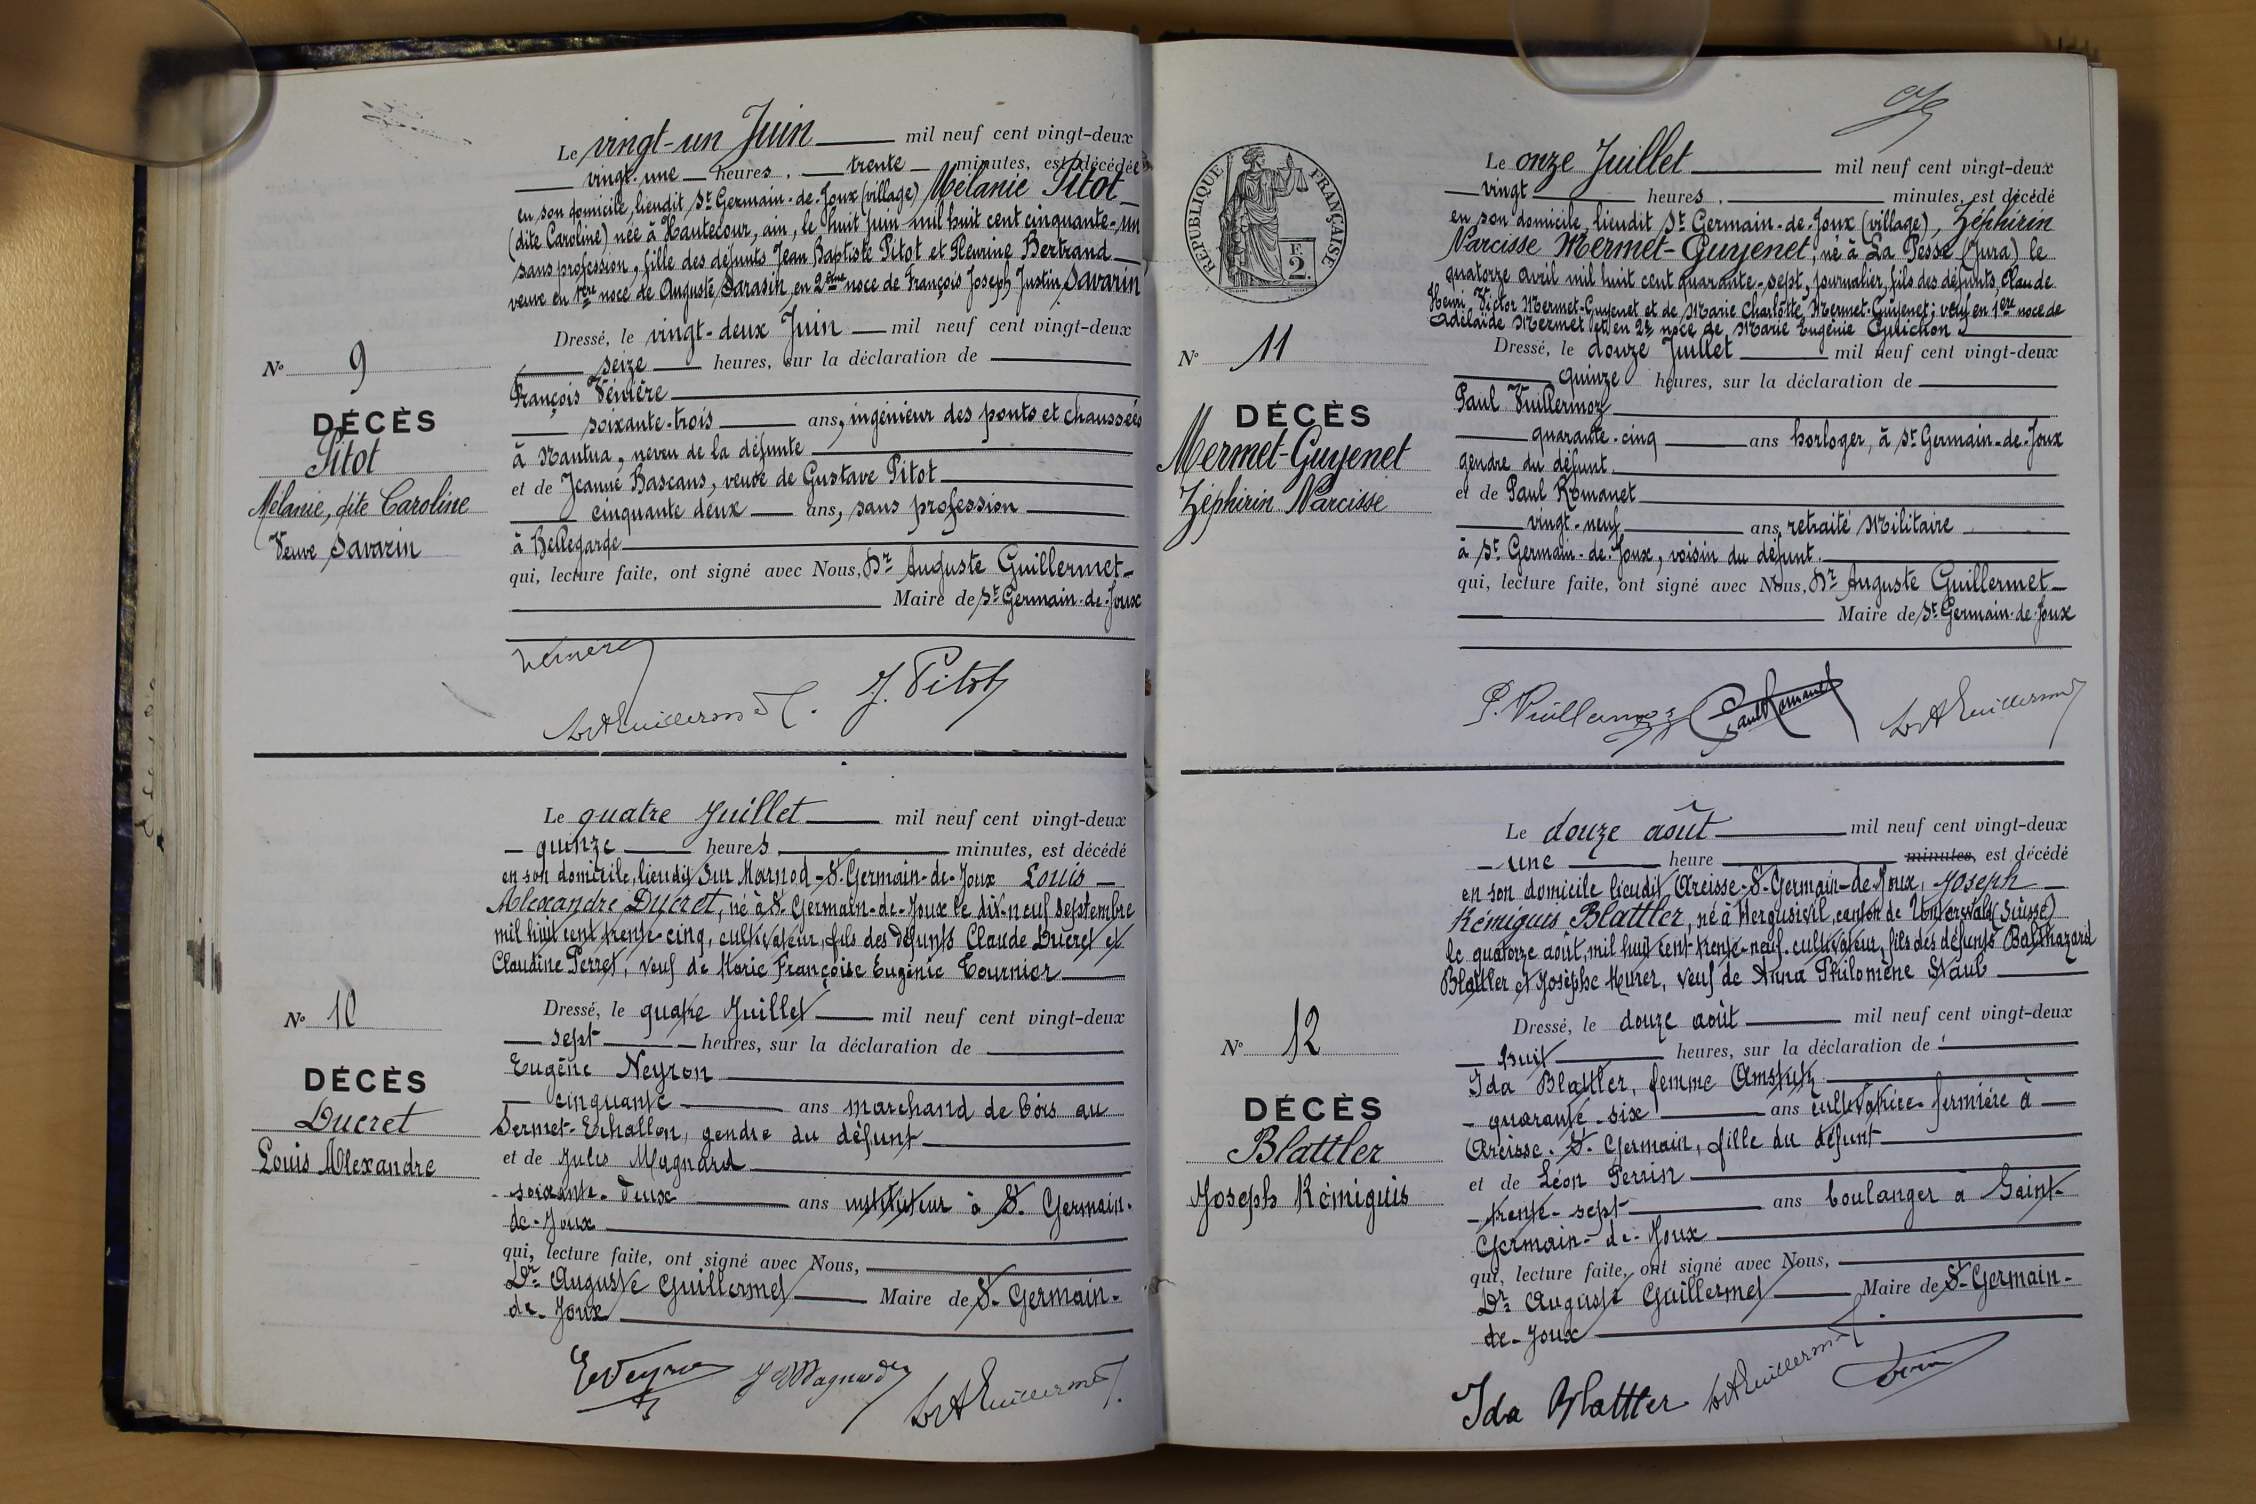 Le vingt-un Juin mil neuf cent vingt-deux
vingt-une heures, trente minutes, est décédée
en son domicile, lieudit St Germain-de-Joux (village) Mélanie Pitot
(dite Caroline) née à Hautecour, ain, le huit juin mil huit cent cinquante-un
sans profession, fille des défunts Jean Baptiste Pitot et Fleurine Bertrand
veuve en 1ère noce de Auguste Sarasin, en 2ème noce de François Joseph Justin Savarin
Dressé, le vingt-deux Juin mil neuf cent vingt-deux
seize heures, sur la déclaration de
François Vénière
soixante-trois ans, ingénieur des ponts et chaussées
à Nantua, neveu de la défunte
et de Jeanne Bascans, veuve de Gustave Pitot
cinquante deux ans, sans profession
à Bellegarde
qui, lecture faite, ont signé avec Nous, Dr Auguste Guillermet
Maire de St Germain-de-Joux
No 9
DÉCÈS
Pitot
Mélanie, dite Caroline
Veuve Savarin
J. Pitot
Le quatre Juillet mil neuf cent vingt-deux
quinze heures minutes, est décédé
en son domicile, lieudit Sur Marnod-St-Germain-de-Joux Louis
Alexandre Ducret, né à St-Germain-de-Joux le dix-neuf septembre
mil huit cent trente-cinq, cultivateur, fils des défunts Claude Ducret et
Claudine Perret, veuf de Marie Françoise Eugénie Tournier
Dressé, le quatre Juillet mil neuf cent vingt-deux
sept heures, sur la déclaration de
Eugène Neyron
cinquante ans marchand de bois au
Sermet-Echallon, gendre du défunt
et de Jules Magnard
soixante-deux ans instituteur à St-Germain-
de-Joux
qui, lecture faite, ont signé avec Nous,
Dr Auguste Guillermet Maire de St-Germain-
de-Joux
No 10
DÉCÈS
Ducret
Louis Alexandre
E Neyron J Magnard Dr A Guillermet
RÉPUBLIQUE FRANÇAISE
F.
2.
Le onze Juillet mil neuf cent vingt-deux
vingt heures, minutes, est décédé
en son domicile, lieudit St Germain-de-Joux (village), Zéphirin
Narcisse Mermet-Guyenet, né à La Pesse (Jura) le
quatorze avril mil huit cent quarante-sept, journalier, fils des défunts Claude
Henri Victor Mermet-Guyenet et de Marie Charlotte Mermet-Guyenet; veuf en 1ère noce de
Adélaïde Mermet et en 2e noce de Marie Eugénie Guichon
Dressé, le douze Juillet mil neuf cent vingt-deux
quinze heures, sur la déclaration de
Paul Vuillermoz
quarante-cinq ans horloger, à St Germain-de-Joux
gendre du défunt
et de Paul Romanet
vingt-neuf ans, retraité Militaire
à St Germain-de-Joux, voisin du défunt.
qui, lecture faite, ont signé avec Nous, Dr Auguste Guillermet
Maire de St Germain-de-Joux
No 11
DÉCÈS
Mermet-Guyenet
Zéphirin Narcisse
P. Vuillermoz Paul Romanet Dr A Guillermet
Le douze août mil neuf cent vingt-deux
une heure minutes, est décédé
en son domicile lieudit Arcisse-St-Germain-de-Joux, Joseph
Rémiguis Blattler, né à Hergusivil, canton de Unterwald (Suisse)
le quatorze août, mil huit cent trente-neuf, cultivateur, fils des défunts Balthazard
Blattler et Josèphe Murer, veuf de Anna Philomène Staub
Dressé, le douze août mil neuf cent vingt-deux
huit heures, sur la déclaration de
Ida Blattler, femme Amstutz
quarante-six ans cultivatrice-fermière à
Arcisse-St-Germain, fille du défunt
et de Léon Perrin
trente-sept ans boulanger à Saint-
Germain-de-Joux
qui, lecture faite, ont signé avec Nous,
Dr Auguste Guillermet Maire de St-Germain-
de-Joux
No 12
DÉCÈS
Blattler
Joseph Rémiguis
Ida Blattler Dr A Guillermet Perrin